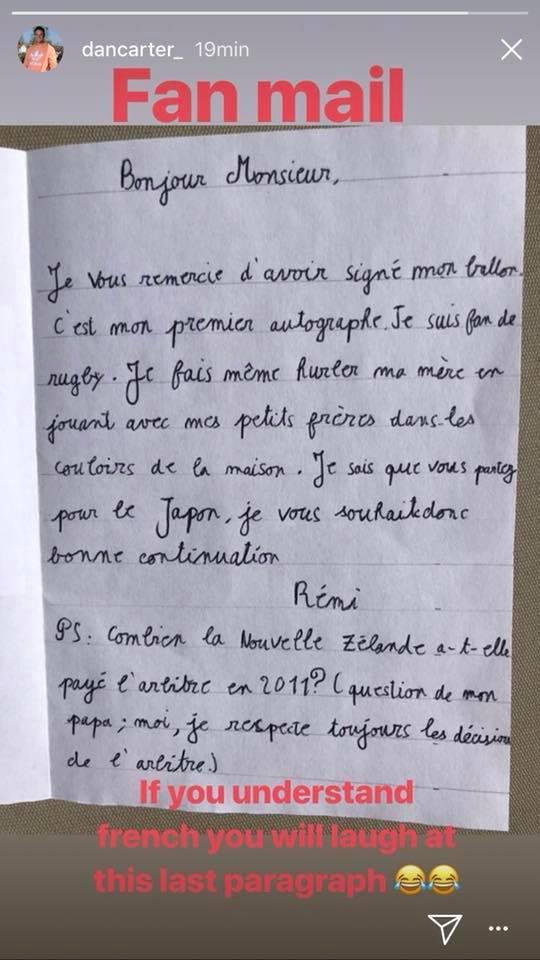 dancarter_ 19min
Fan mail
Bonjour Monsieur,
Je vous remercie d'avoir signé mon ballon.
C'est mon premier autographe. Je suis fan de
rugby. Je fais même hurler ma mère en
jouant avec mes petits frères dans les
couloirs de la maison. Je sais que vous partez
pour le Japon, je vous souhait donc
bonne continuation
Rémi
PS: Combien la Nouvelle Zélande a-t-elle
payé l'arbitre en 2011? (question de mon
papa; moi, je respecte toujours les décision
de l'arbitre)
If you understand
french you will laugh at
this last paragraph 😂😂